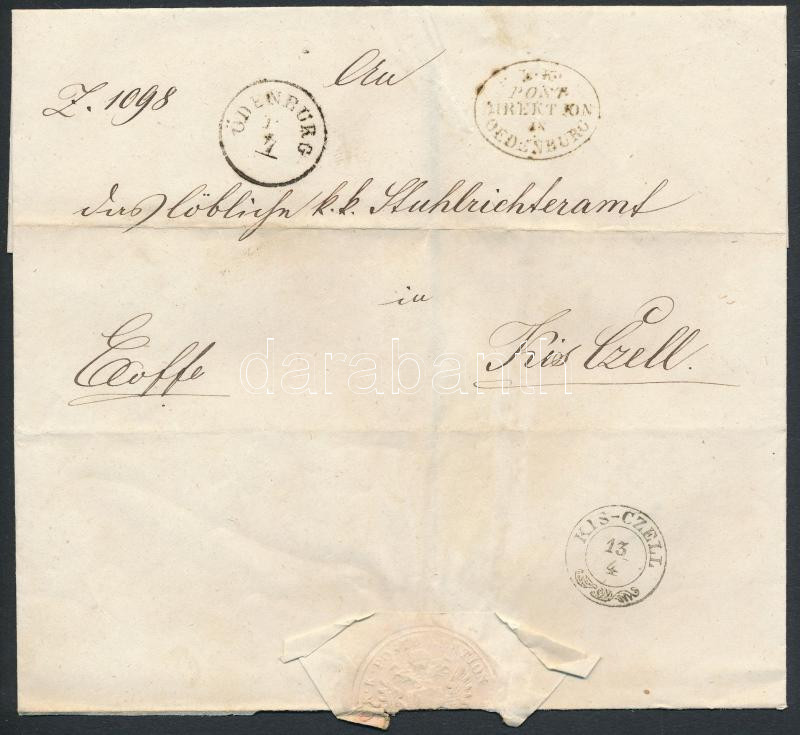 An
Z. 1098
ÖDENBURG
K.K.
POST
DIREKTION
IN
OEDENBURG
das löbliche k.k. Stuhlrichteramt
in
Exoffo
Kis Czell.
darabanth
KIS-CZELL
13
4